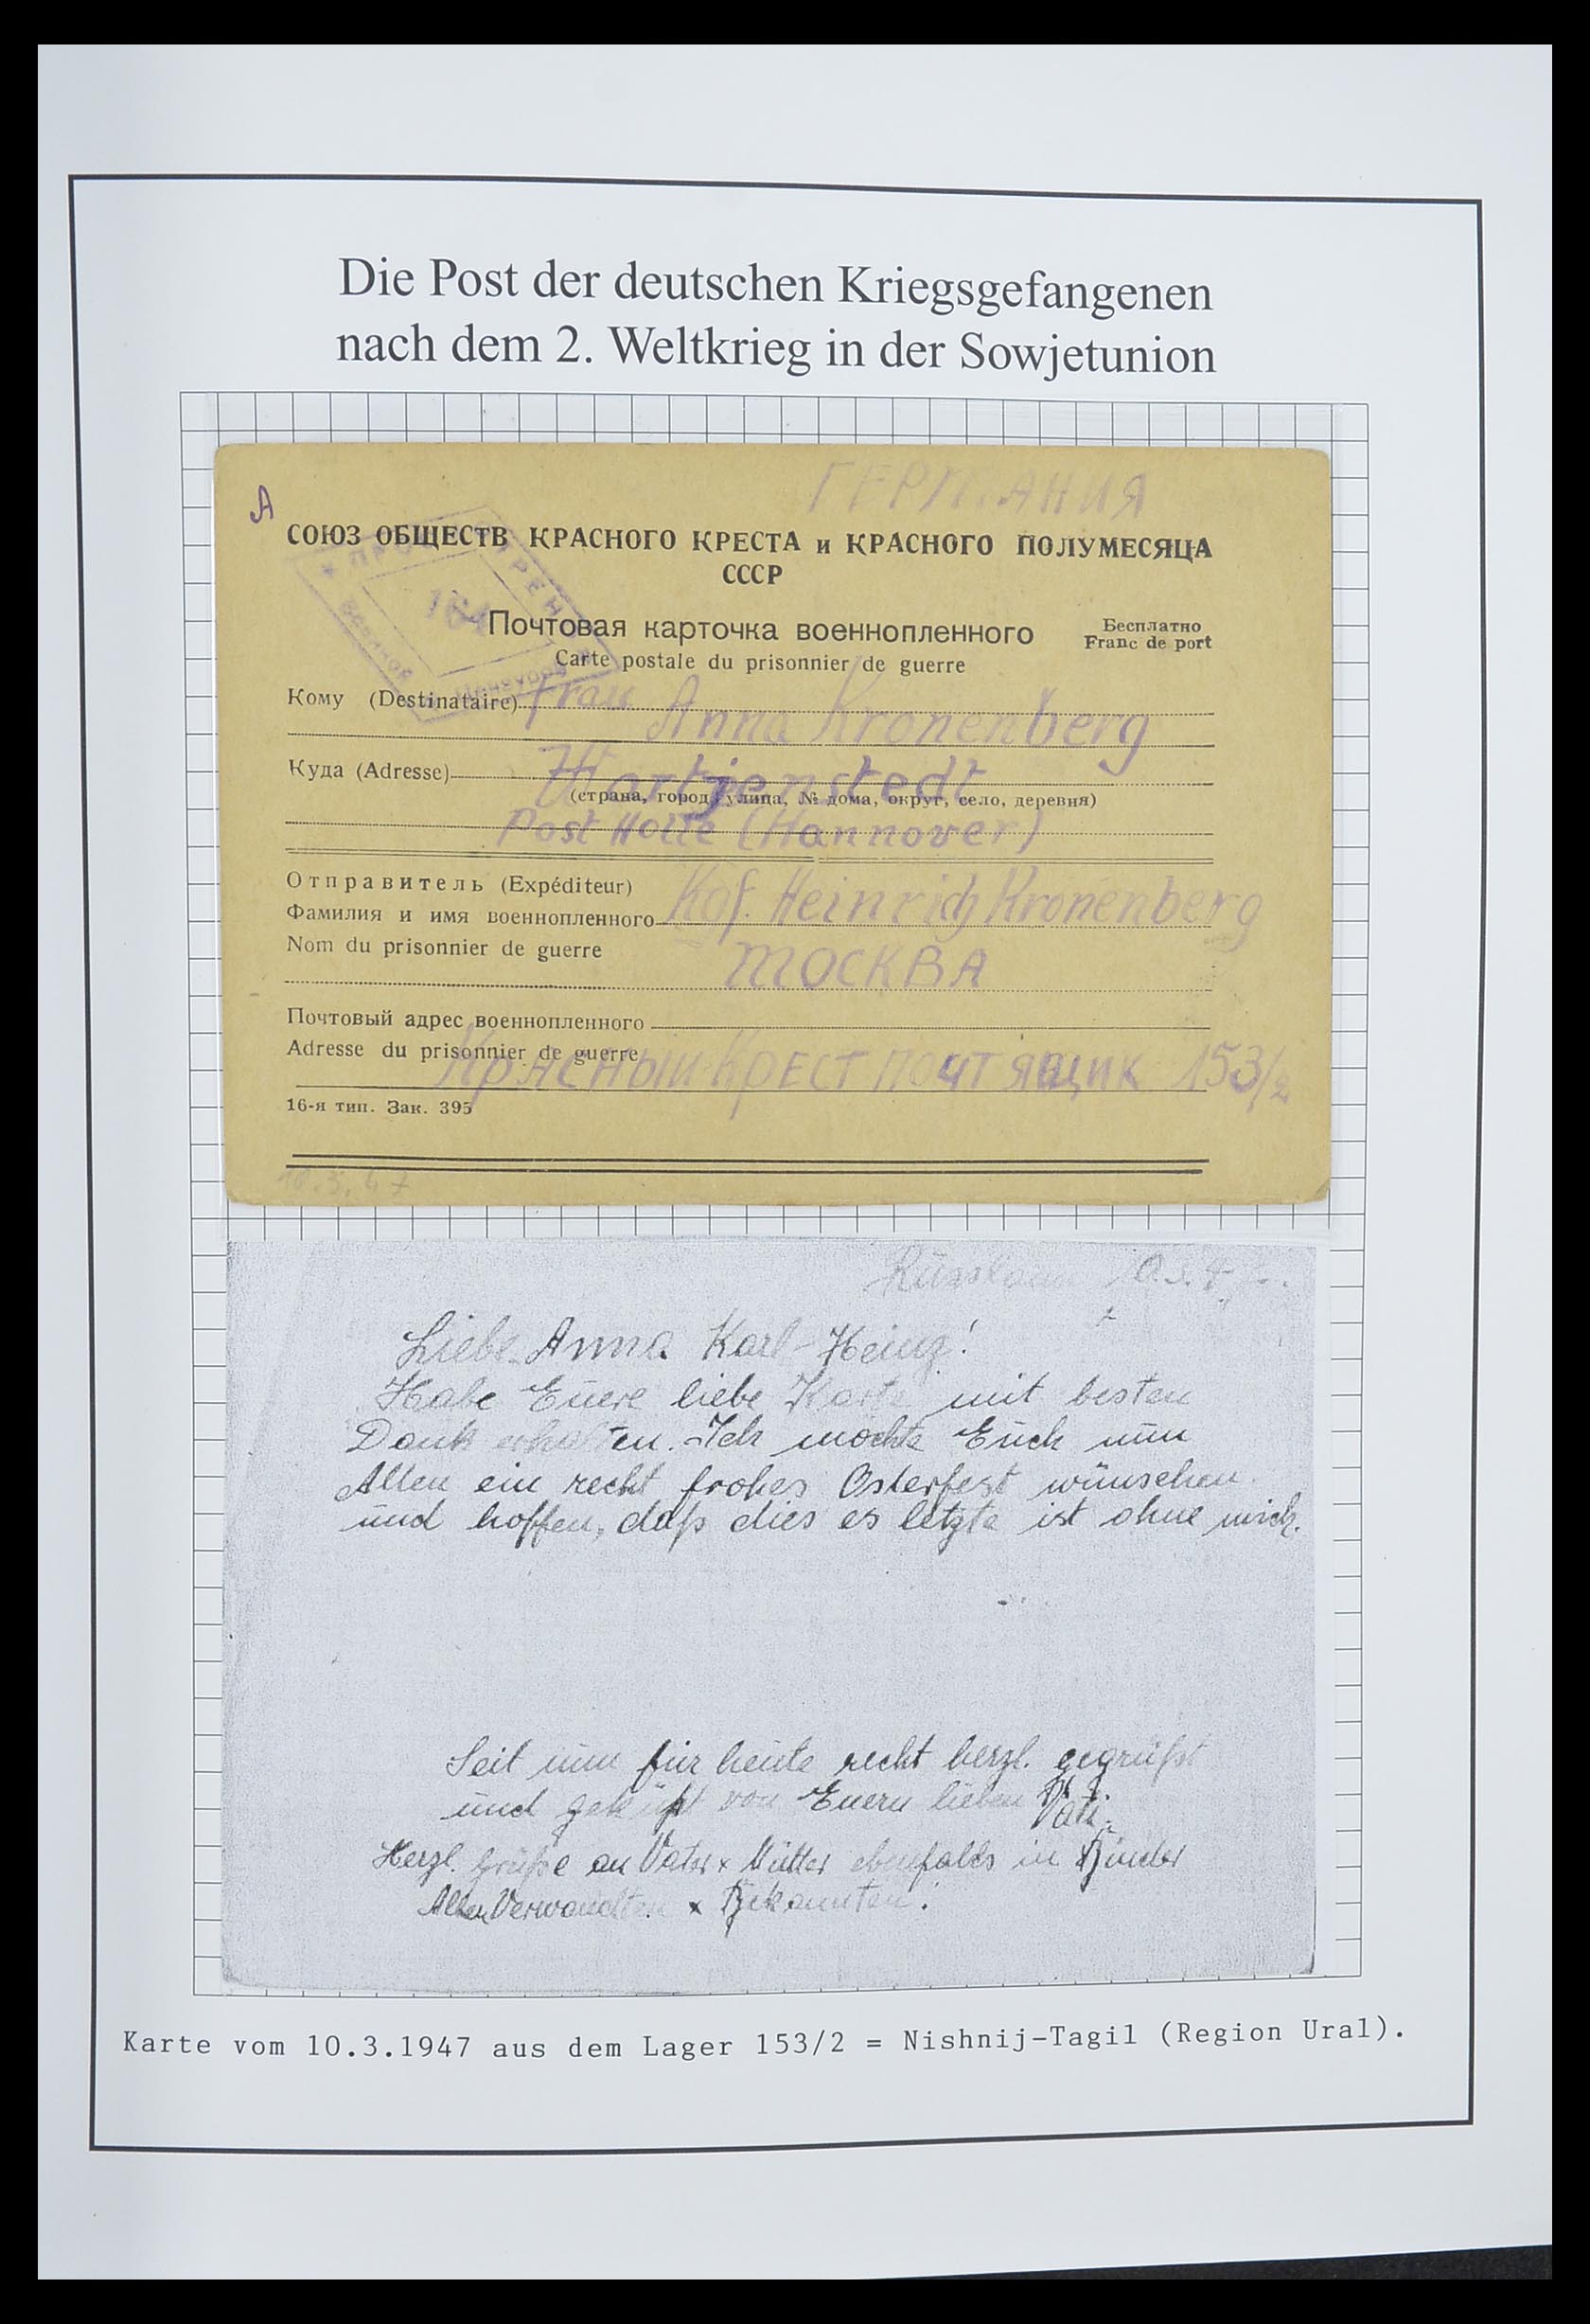 Die Post der deutschen Kriegsgefangenen
nach dem 2. Weltkrieg in der Sowjetunion
ГЕРМАНИЯ
А
СОЮЗ ОБЩЕСТВ КРАСНОГО КРЕСТА и КРАСНОГО ПОЛУМЕСЯЦА
СССР
164
Почтовая карточка военнопленного
Бесплатно
Carte postale du prisonnier de guerre
Franc de port
Кому (Destinataire) Frau
Anna Kronenberg
Куда (Adresse) Wartjenstedt
(страна, город, улица, № дома, округ, село, деревня)
Post Holle (Hannover)
Отправитель (Expéditeur)
Фамилия и имя военнопленного Kgf. Heinrich Kronenberg
Nom du prisonnier de guerre
МОСКВА
Почтовый адрес военнопленного
Adresse du prisonnier de guerre
Красный-Крест почт ящик 153/2
16-я тип. Зак. 395
10.3.47
10.3.47.
Liebe Anna Karl-Heinz!
Habe Euere liebe Karte mit besten
Dank erhalten. Ich möchte Euch nun
Allen ein recht frohes Osterfest wünschen
und hoffen, daß dies es letzte ist ohne mich.
Seit nun für heute recht herzl. gegrüßt
und geküßt von Euern lieben Vati.
Herzl. Grüße an Vater x Mutter ebenfalls in Binder
Allen Verwandten x Bekannten.
Karte vom 10.3.1947 aus dem Lager 153/2 = Nishnij-Tagil (Region Ural).